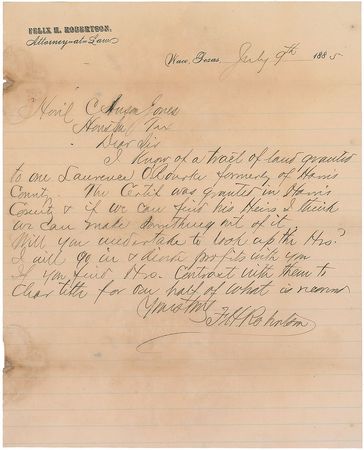 FELIX H. ROBERTSON.
Attorney-at-Law
Waco, Texas, July 9th 1885
C. Anson Jones
Houston Tex
Dear Sir
I know of a tract of land granted
to one Laurence O'Rourke formerly of Harris
County. The Certif was granted in Harris
County & if we can find his Heirs I think
we can make something out of it
Will you undertake to look up the Hrs?
I will go in & divide profits with you
If you find Hrs. Contract with them to
clear title for one half of what is
Yours truly
F H Robertson